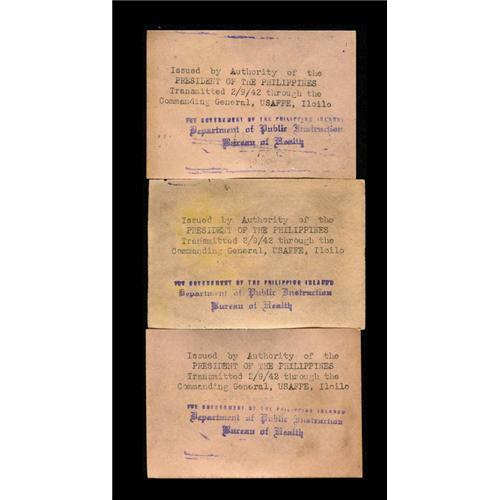 Issued by Authority of the
PRESIDENT OF THE PHILIPPINES
Transmitted 2/9/42 through the
Commanding General, USAFFE, Iloilo
THE GOVERNMENT OF THE PHILIPPINE ISLANDS
Department of Public Instruction
Bureau of Health
Issued by Authority of the
PRESIDENT OF THE PHILIPPINES
Transmitted 2/9/42 through the
Commanding General, USAFFE, Iloilo
THE GOVERNMENT OF THE PHILIPPINE ISLANDS
Department of Public Instruction
Bureau of Health
Issued by Authority of the
PRESIDENT OF THE PHILIPPINES
Transmitted 2/9/42 through the
Commanding General, USAFFE, Iloilo
THE GOVERNMENT OF THE PHILIPPINE ISLANDS
Department of Public Instruction
Bureau of Health